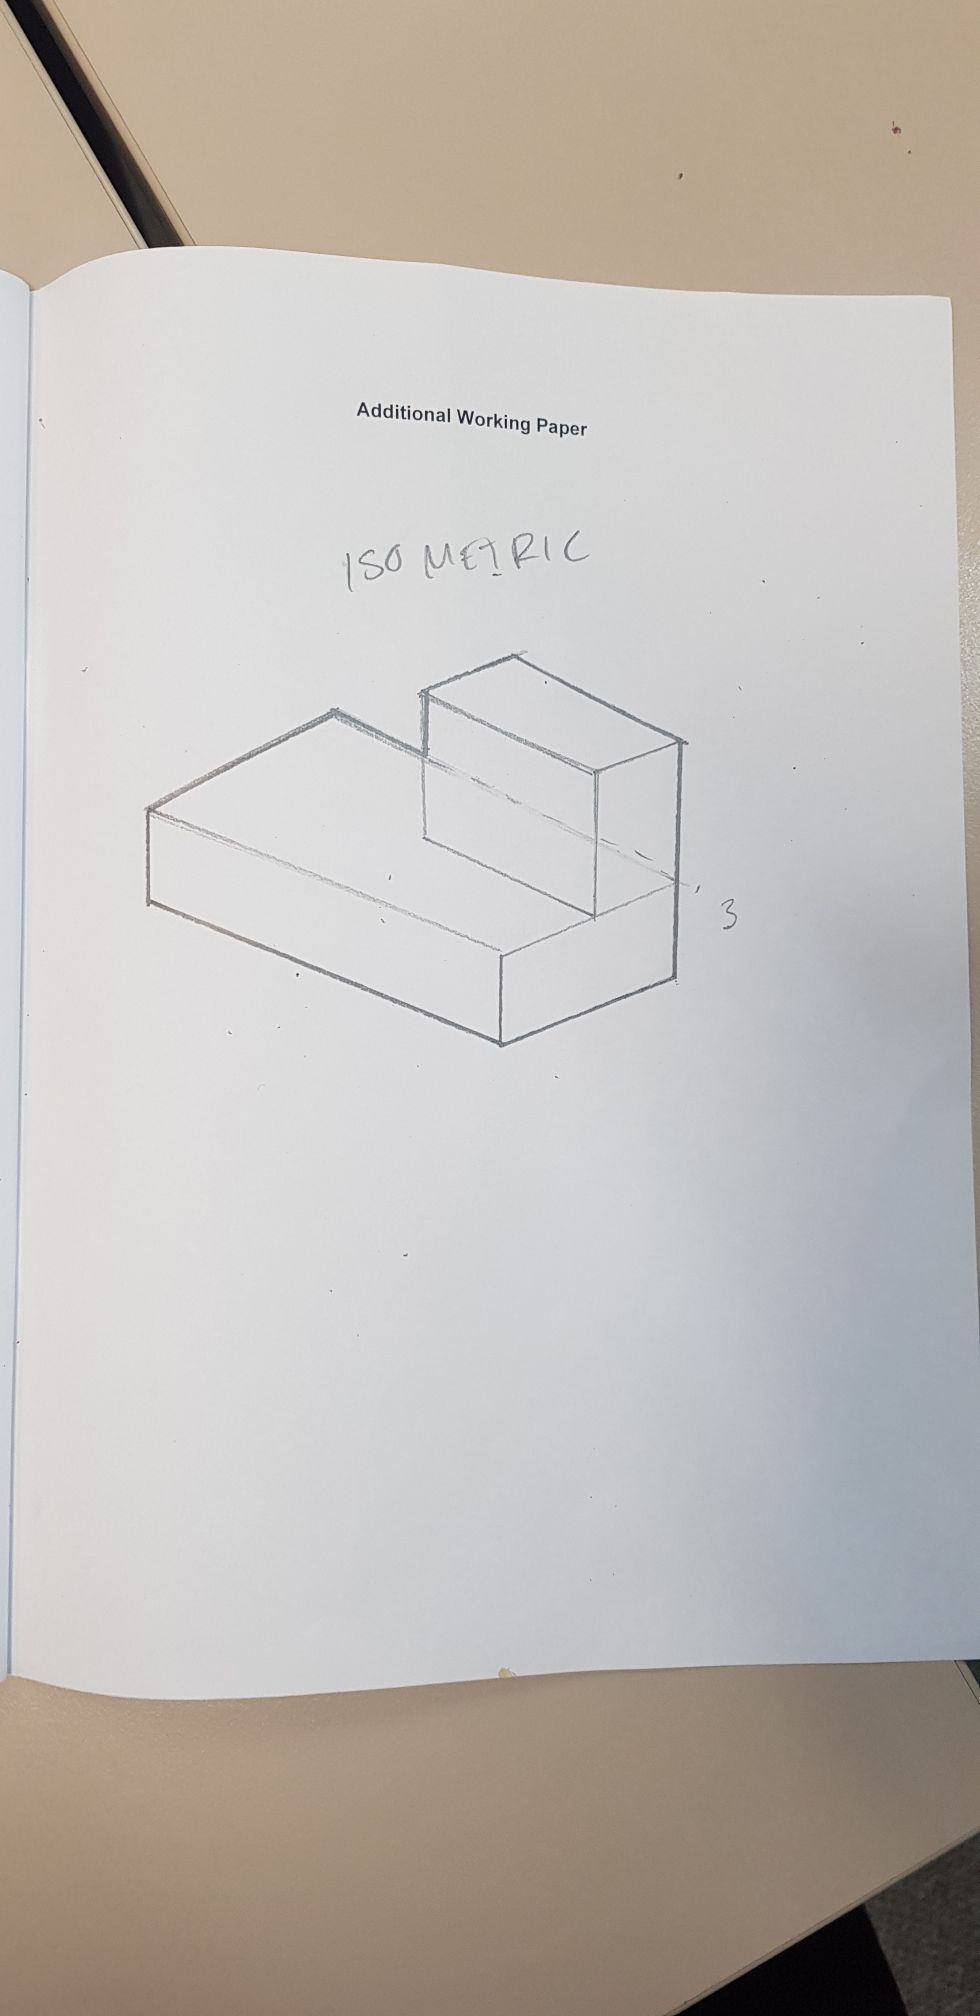 Additional Working Paper
ISOMETRIC
3